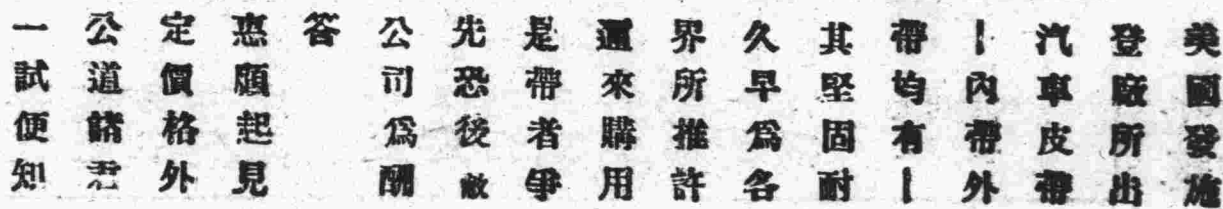 美國發施
登廠所出
汽車皮帶
｜內帶外
帶均有｜
其堅固耐
久早為各
界所推許
邇來購用
是帶者爭
先恐後敝
公司為酬
答
惠顧起見
定價格外
公道諸君
一試便知